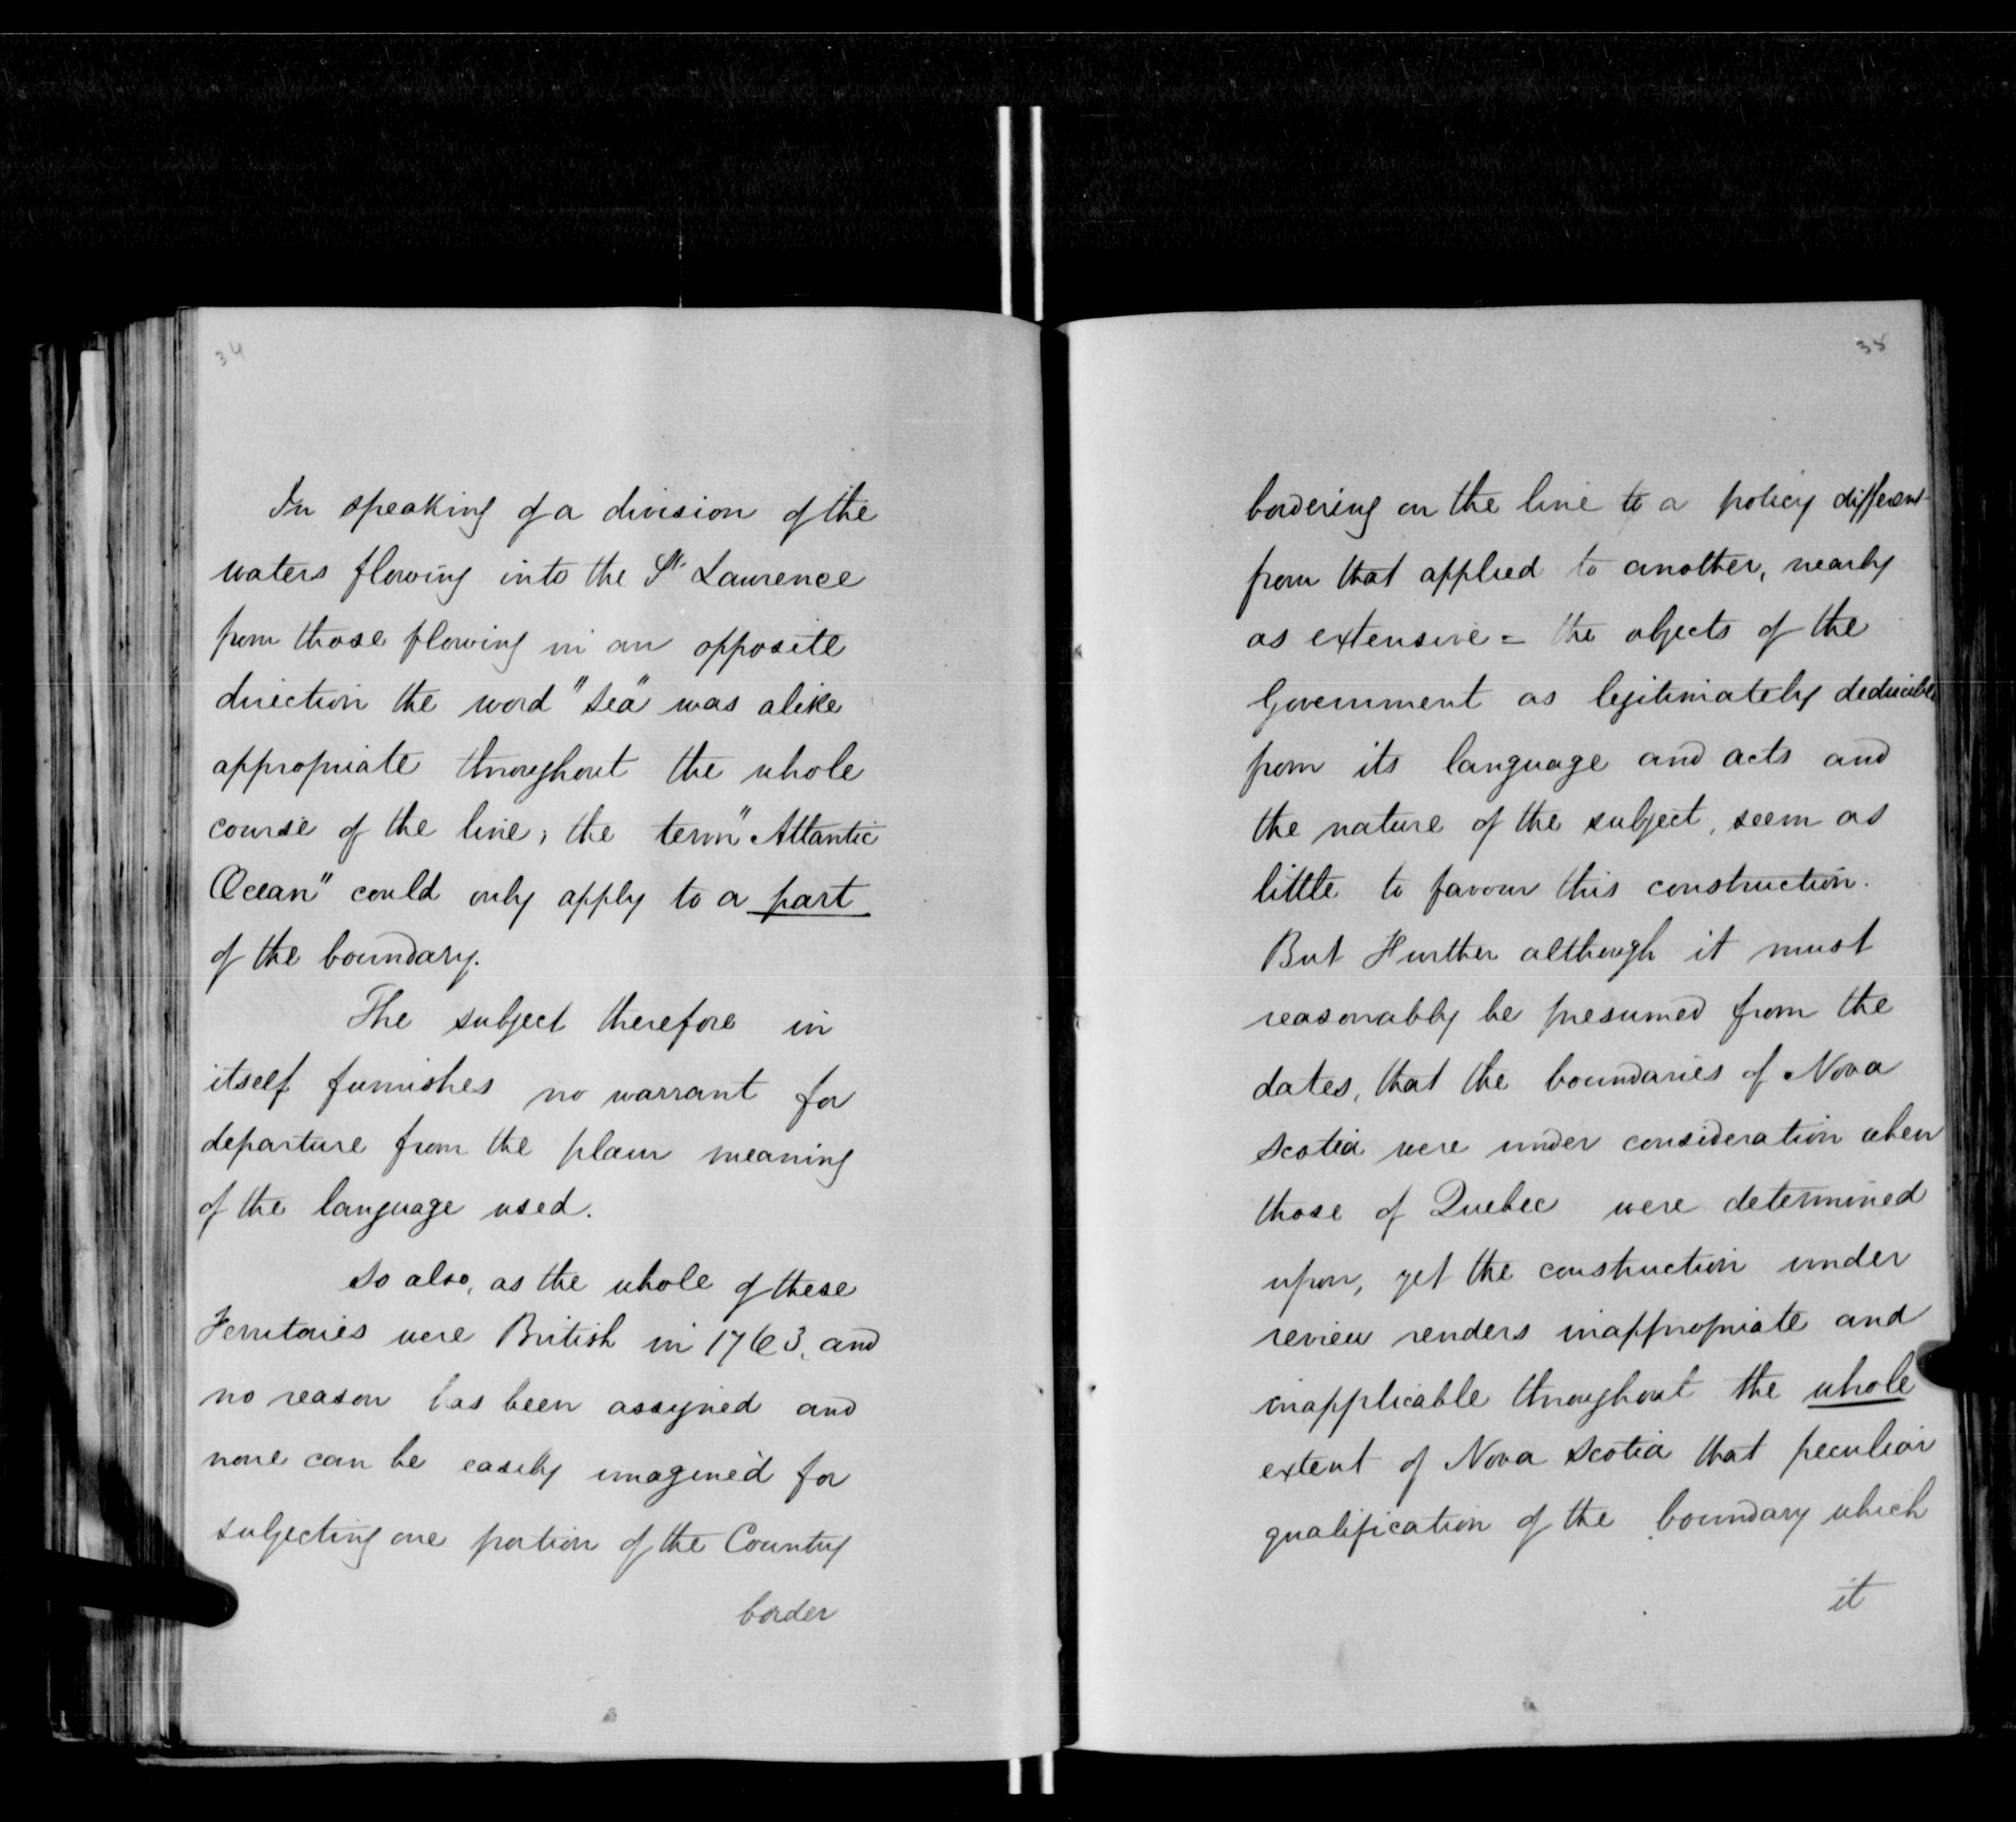 34
In speaking of a division of the
waters flowing into the St. Lawrence
from those flowing in an opposite
direction the word "sea" was alike
appropriate throughout the whole
course of the line; the term "Atlantic
Ocean" could only apply to a part
of the boundary.
The subject therefore in
itself furnishes no warrant for
departure from the plain meaning
of the language used.
So also, as the whole of these
Territories were British in 1763, and
no reason has been assigned and
none can be easily imagined for
subjecting one portion of the Country
border
35
bordering on the line to a policy different
from that applied to another, nearly
as extensive = the objects of the
Government as legitimately deducible
from its language and acts and
the nature of the subject, seem as
little to favour this construction.
But Further although it must
reasonably be presumed from the
dates, that the boundaries of Nova
Scotia were under consideration when
those of Quebec were determined
upon, yet the construction under
review renders inappropriate and
inapplicable throughout the whole
extent of Nova Scotia that peculiar
qualification of the boundary which
it